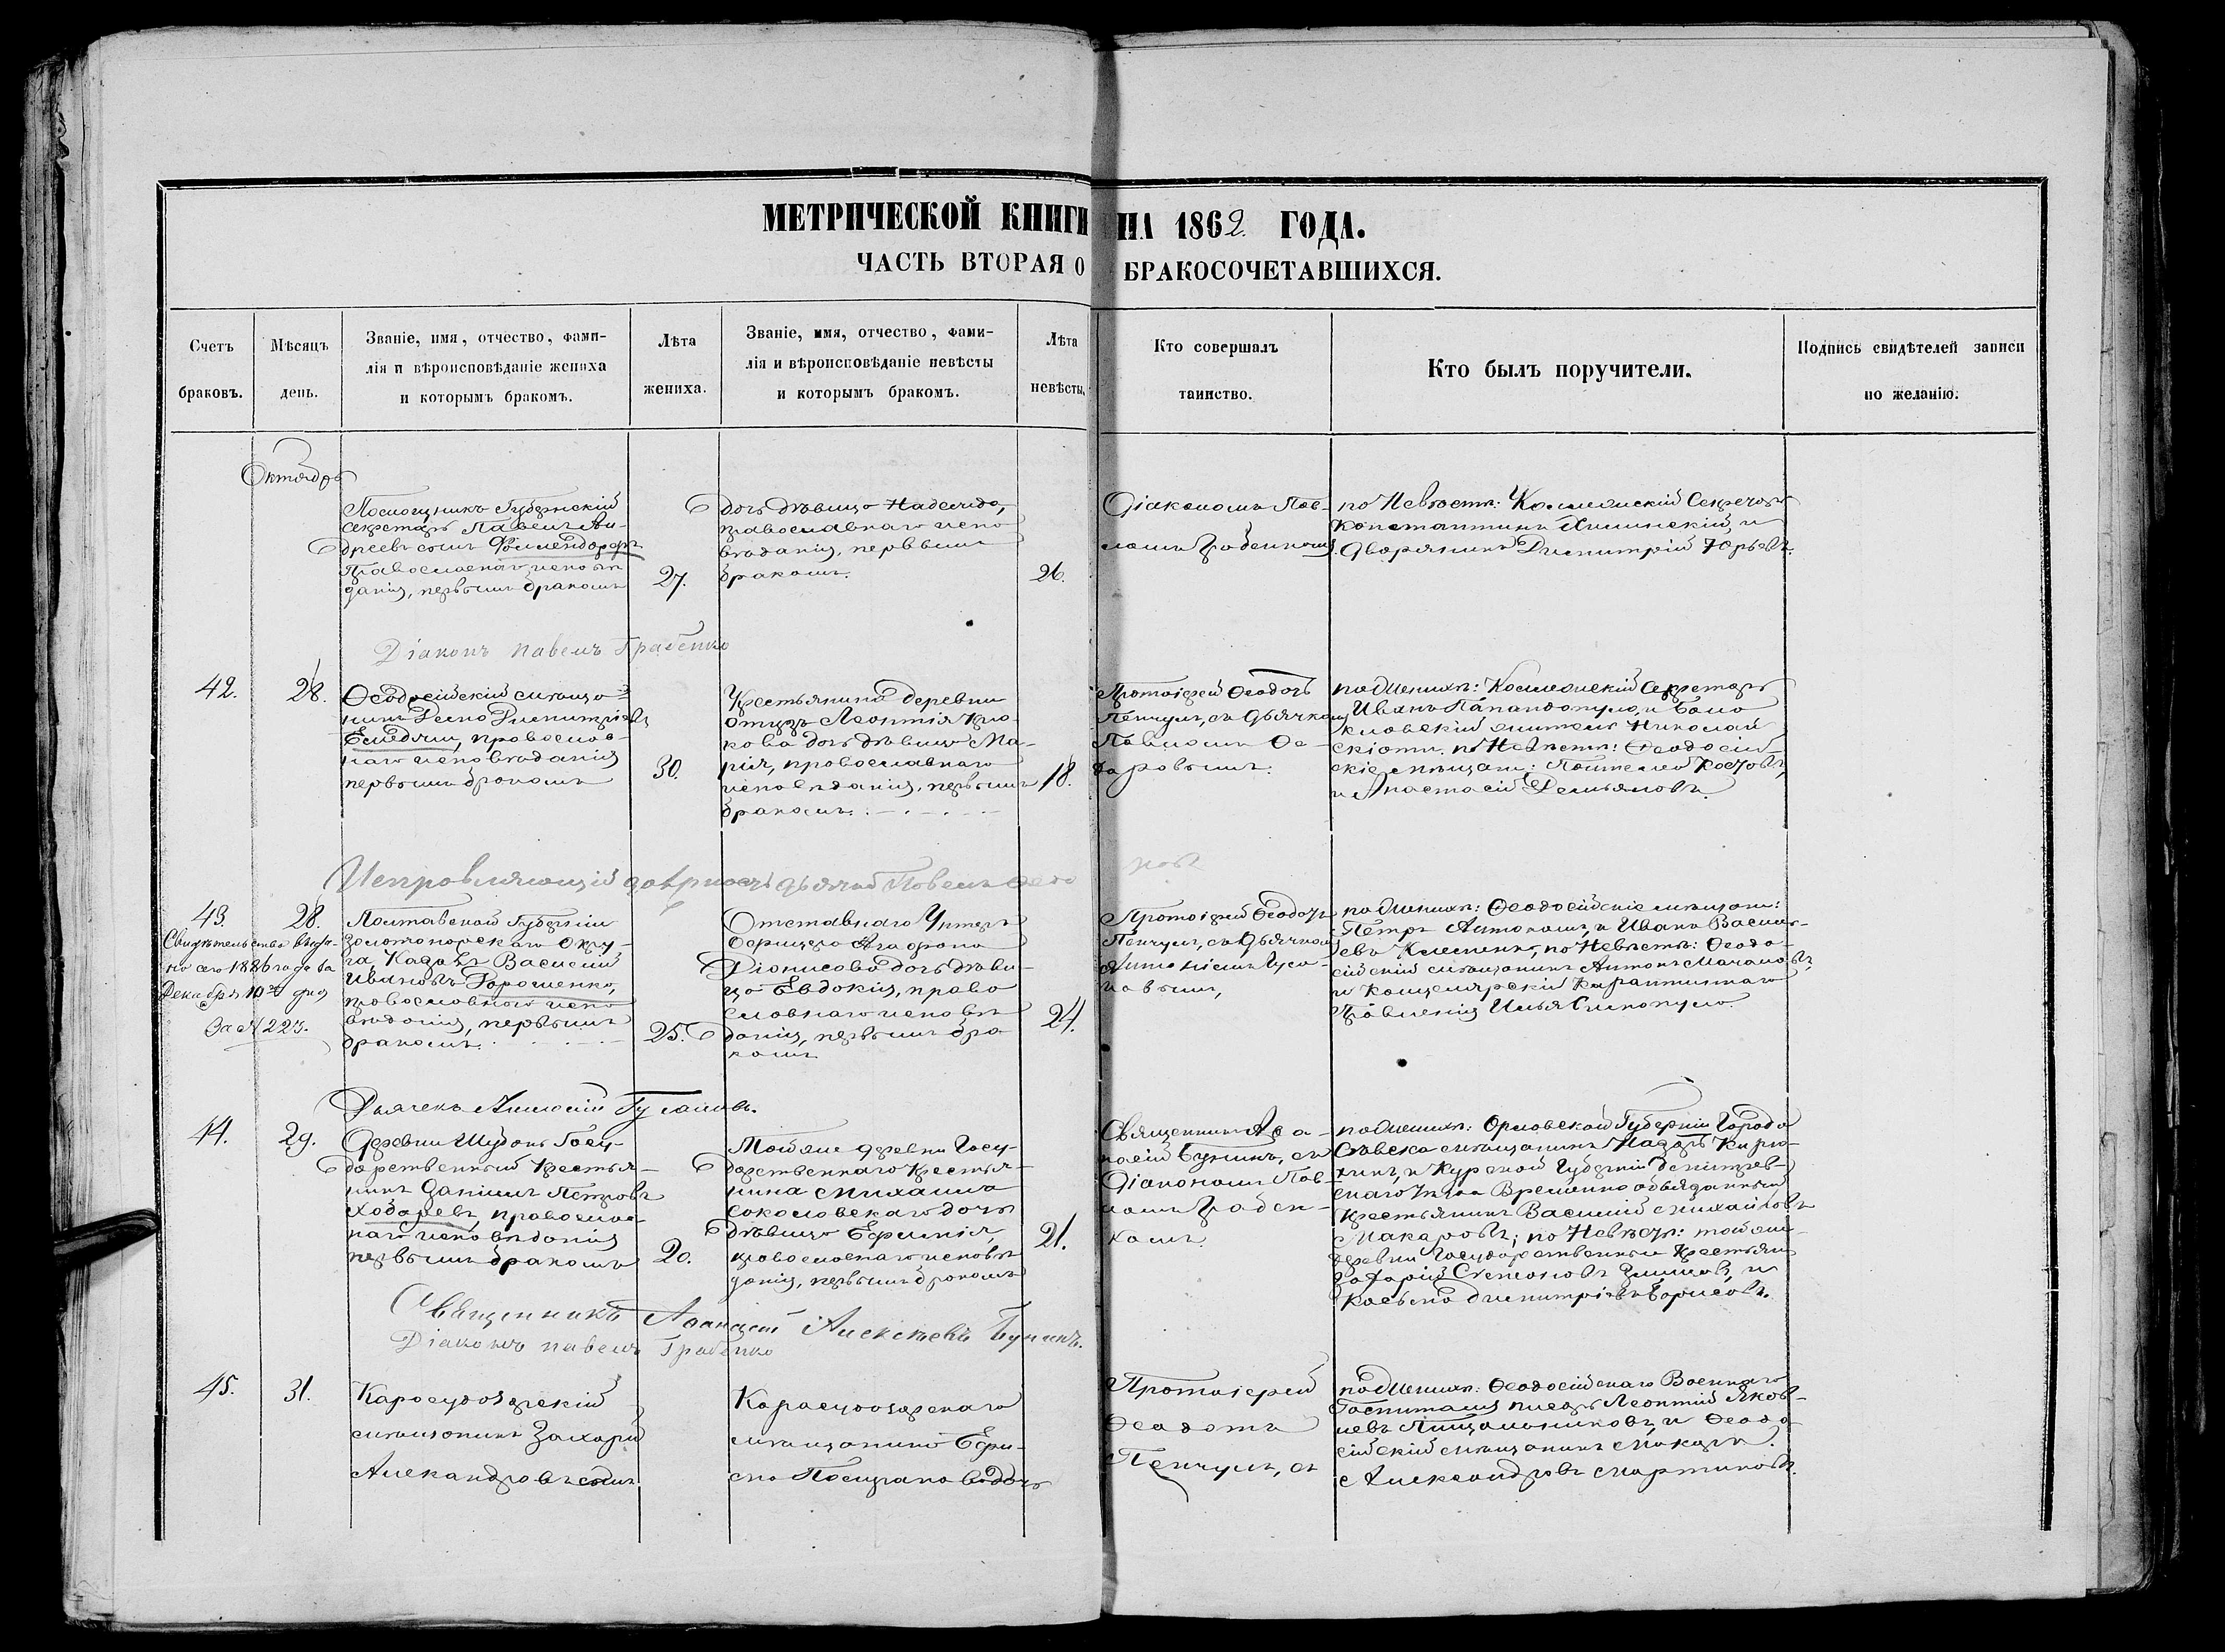 МЕТРИЧЕСКОЙ КНИГИ НА 1862 ГОДА.
ЧАСТЬ ВТОРАЯ О БРАКОСОЧЕТАВШИХСЯ.
Счетъ браковъ.
Мѣсяцъ день.
Званіе, имя, отчество, фами-
лія и вѣроисповѣданіе жениха
и которымъ бракомъ.
Лѣта жениха.
Званіе, имя, отчество, фами-
лія и вѣроисповѣданіе невѣсты
и которымъ бракомъ.
Лѣта невѣсты.
Кто совершалъ таинство.
Кто былъ поручители.
Подпись свидѣтелей записи
по желанію.
Октябрь
Помощникъ Губернскій
Секретарь Павелъ Ан-
дреевъ сынъ
Православнаго исповѣ
данія, первымъ бракомъ
27.
дочь дѣвица Надежда,
православнаго испо
вѣданія, первымъ
бракомъ.
26.
Діакономъ Пав-
ломъ Грабенкомъ
по Невѣстѣ: Коллежскій Секретарь
Константинъ и
Дворянинъ Димитрій Юрьевъ.
Діаконъ Павелъ Грабенко
42.
28.
Ѳеодосійскій мѣща
нинъ Димитріевъ
православ-
наго исповѣданія
первымъ бракомъ
30.
Крестьянина деревни
Отузъ Леонтія Крю-
кова дочь дѣвица Ма-
рія, православнаго
исповѣданія, первымъ
бракомъ.
18.
Протоіерей Ѳеодотъ
Пенчулъ, съ Дьячкомъ
Павломъ Ѳе-
доровымъ.
по Женихѣ: Коллежскій Секретарь
Иванъ Папандопуло, и Бала
клавскій житель Николай
по Невѣстѣ: Ѳеодосій-
скіе мѣщане: Пантелей Костовъ,
и Анастасій Демьяновъ.
Исправляющій должность дьячка Павелъ Ѳедоровъ
43.
28.
Свидѣтельство выда-
но сего 1886 года
Декабря 10го дня
За № 223.
Полтавской Губерніи
Золотоношскаго Окру-
га, Казакъ Василій
Ивановъ Дорошенко,
православнаго испо
вѣданія, первымъ
бракомъ.
25.
Отставнаго Унтеръ
Офицера Агафона
Діонисова дочь дѣви-
ца Евдокія, право
славнаго исповѣ
данія, первымъ бра
комъ
24.
Протоіерей Ѳеодотъ
Пенчулъ, съ Дьячкомъ
по Женихѣ: Ѳеодосійскіе мѣщане:
Петръ Антоновъ, и Иванъ Василь-
евъ Клименко, по Невѣстѣ: Ѳеодо-
сійскій мѣщанинъ Антонъ
и Канцелярскій Карантиннаго
Правленія Илья Синопуло.
Дьячекъ
44.
29.
Деревни Шубонъ Госу-
дарственный Крестья-
нинъ Даніилъ Петровъ
Ходаревъ, православ-
наго исповѣданія
первымъ бракомъ
20.
Той же деревни Госу-
дарственнаго Крестья-
нина Михаила
Соколовскаго дочь
дѣвица Ефимія,
православнаго исповѣ
данія, первымъ бракомъ
21.
Священникъ Аѳа-
насій Бунинъ, съ
Діакономъ Пав-
ломъ Грабен-
комъ.
по Женихѣ: Орловской Губерніи Города
Сѣвска мѣщанинъ Назаръ Кирю-
хинъ, и Курской Губерніи Дмитріев-
скаго Уѣзда Временно обязанный
Крестьянинъ Василій Михайловъ
Макаровъ; по Невѣстѣ: той же
деревни Государственные Крестьяне
Захарій Степановъ и
Косьма Димитріевъ Борисовъ.
Священникъ Аѳанасій Алексѣевъ Бунинъ.
Діаконъ Павелъ Грабенко
45.
31.
Карасубазарскій
мѣщанинъ Захарій
Александровъ сынъ
Карасубазарскаго
мѣщанина Ефи-
ма дочь
Протоіерей
Ѳеодотъ
Пенчулъ, съ
по Женихѣ: Ѳеодосійскаго Военнаго
Госпиталя писарь Леонтій Яков-
левъ Пищальниковъ, и Ѳеодо-
сійскій мѣщанинъ Макаръ
Александровъ Мартиновъ.